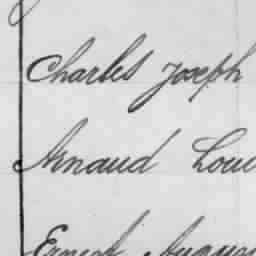 Charles Joseph
Arnaud Loui
Ernest Augus